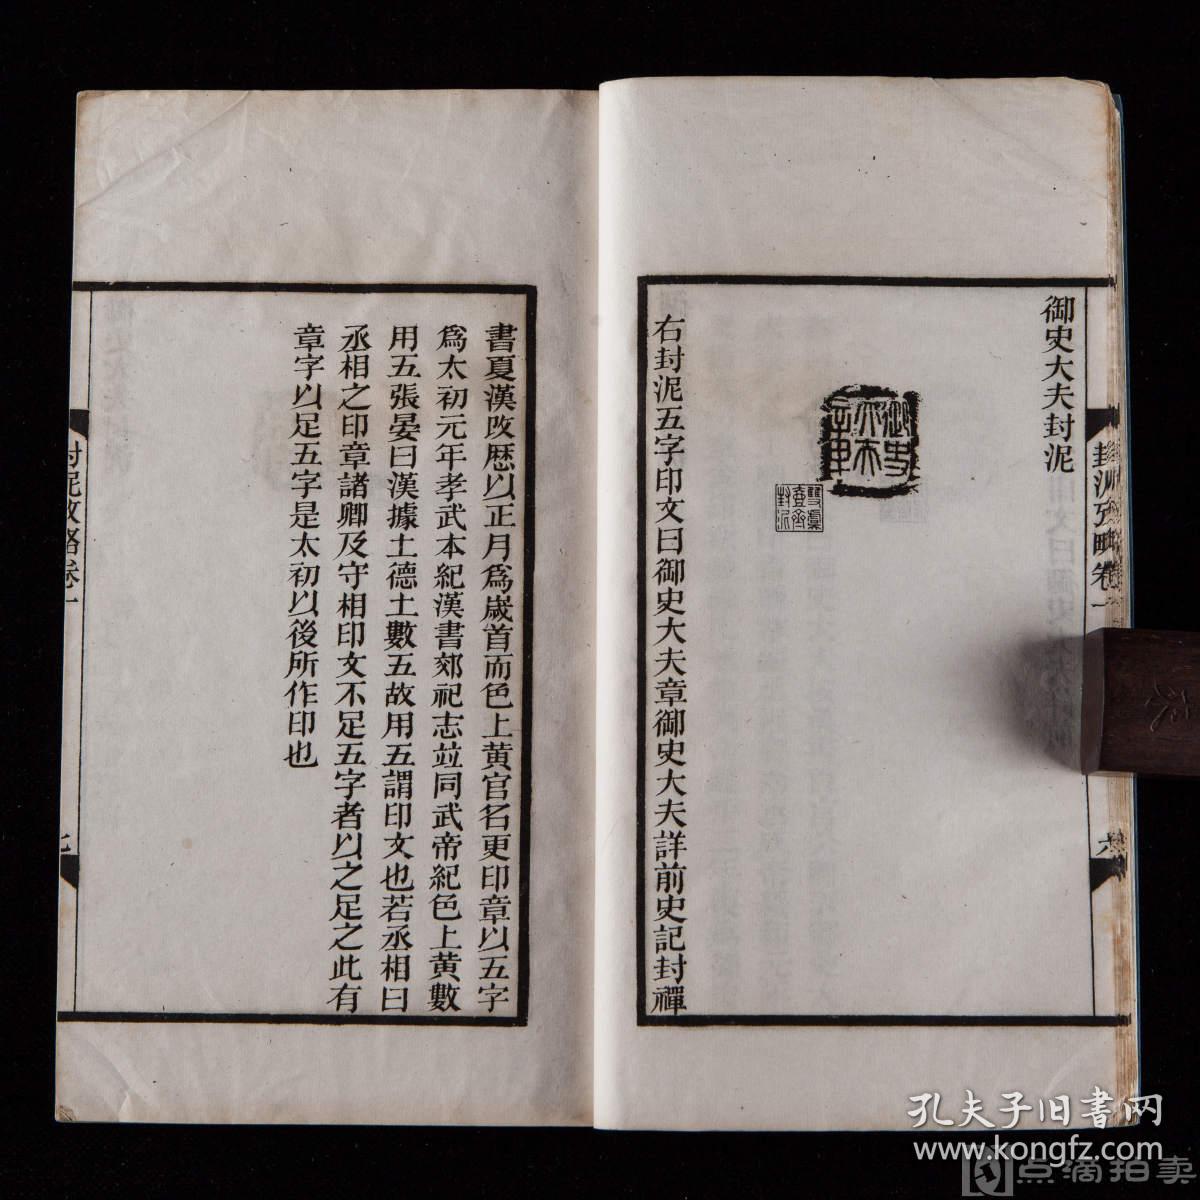 御史大夫封泥
御史大夫章
雙虞壺齋封泥
右封泥五字印文曰御史大夫章御史大夫詳前史記封禪
封泥攷略卷一
六
書夏漢改厯以正月爲歲首而色上黄官名更印章以五字
爲太初元年孝武本紀漢書郊祀志竝同武帝紀色上黄數
用五張晏曰漢據土德土數五故用五謂印文也若丞相曰
丞相之印章諸卿及守相印文不足五字者以之足之此有
章字以足五字是太初以後所作印也
封泥攷略卷一
七
孔夫子旧書网
www.kongfz.com
点滴拍卖